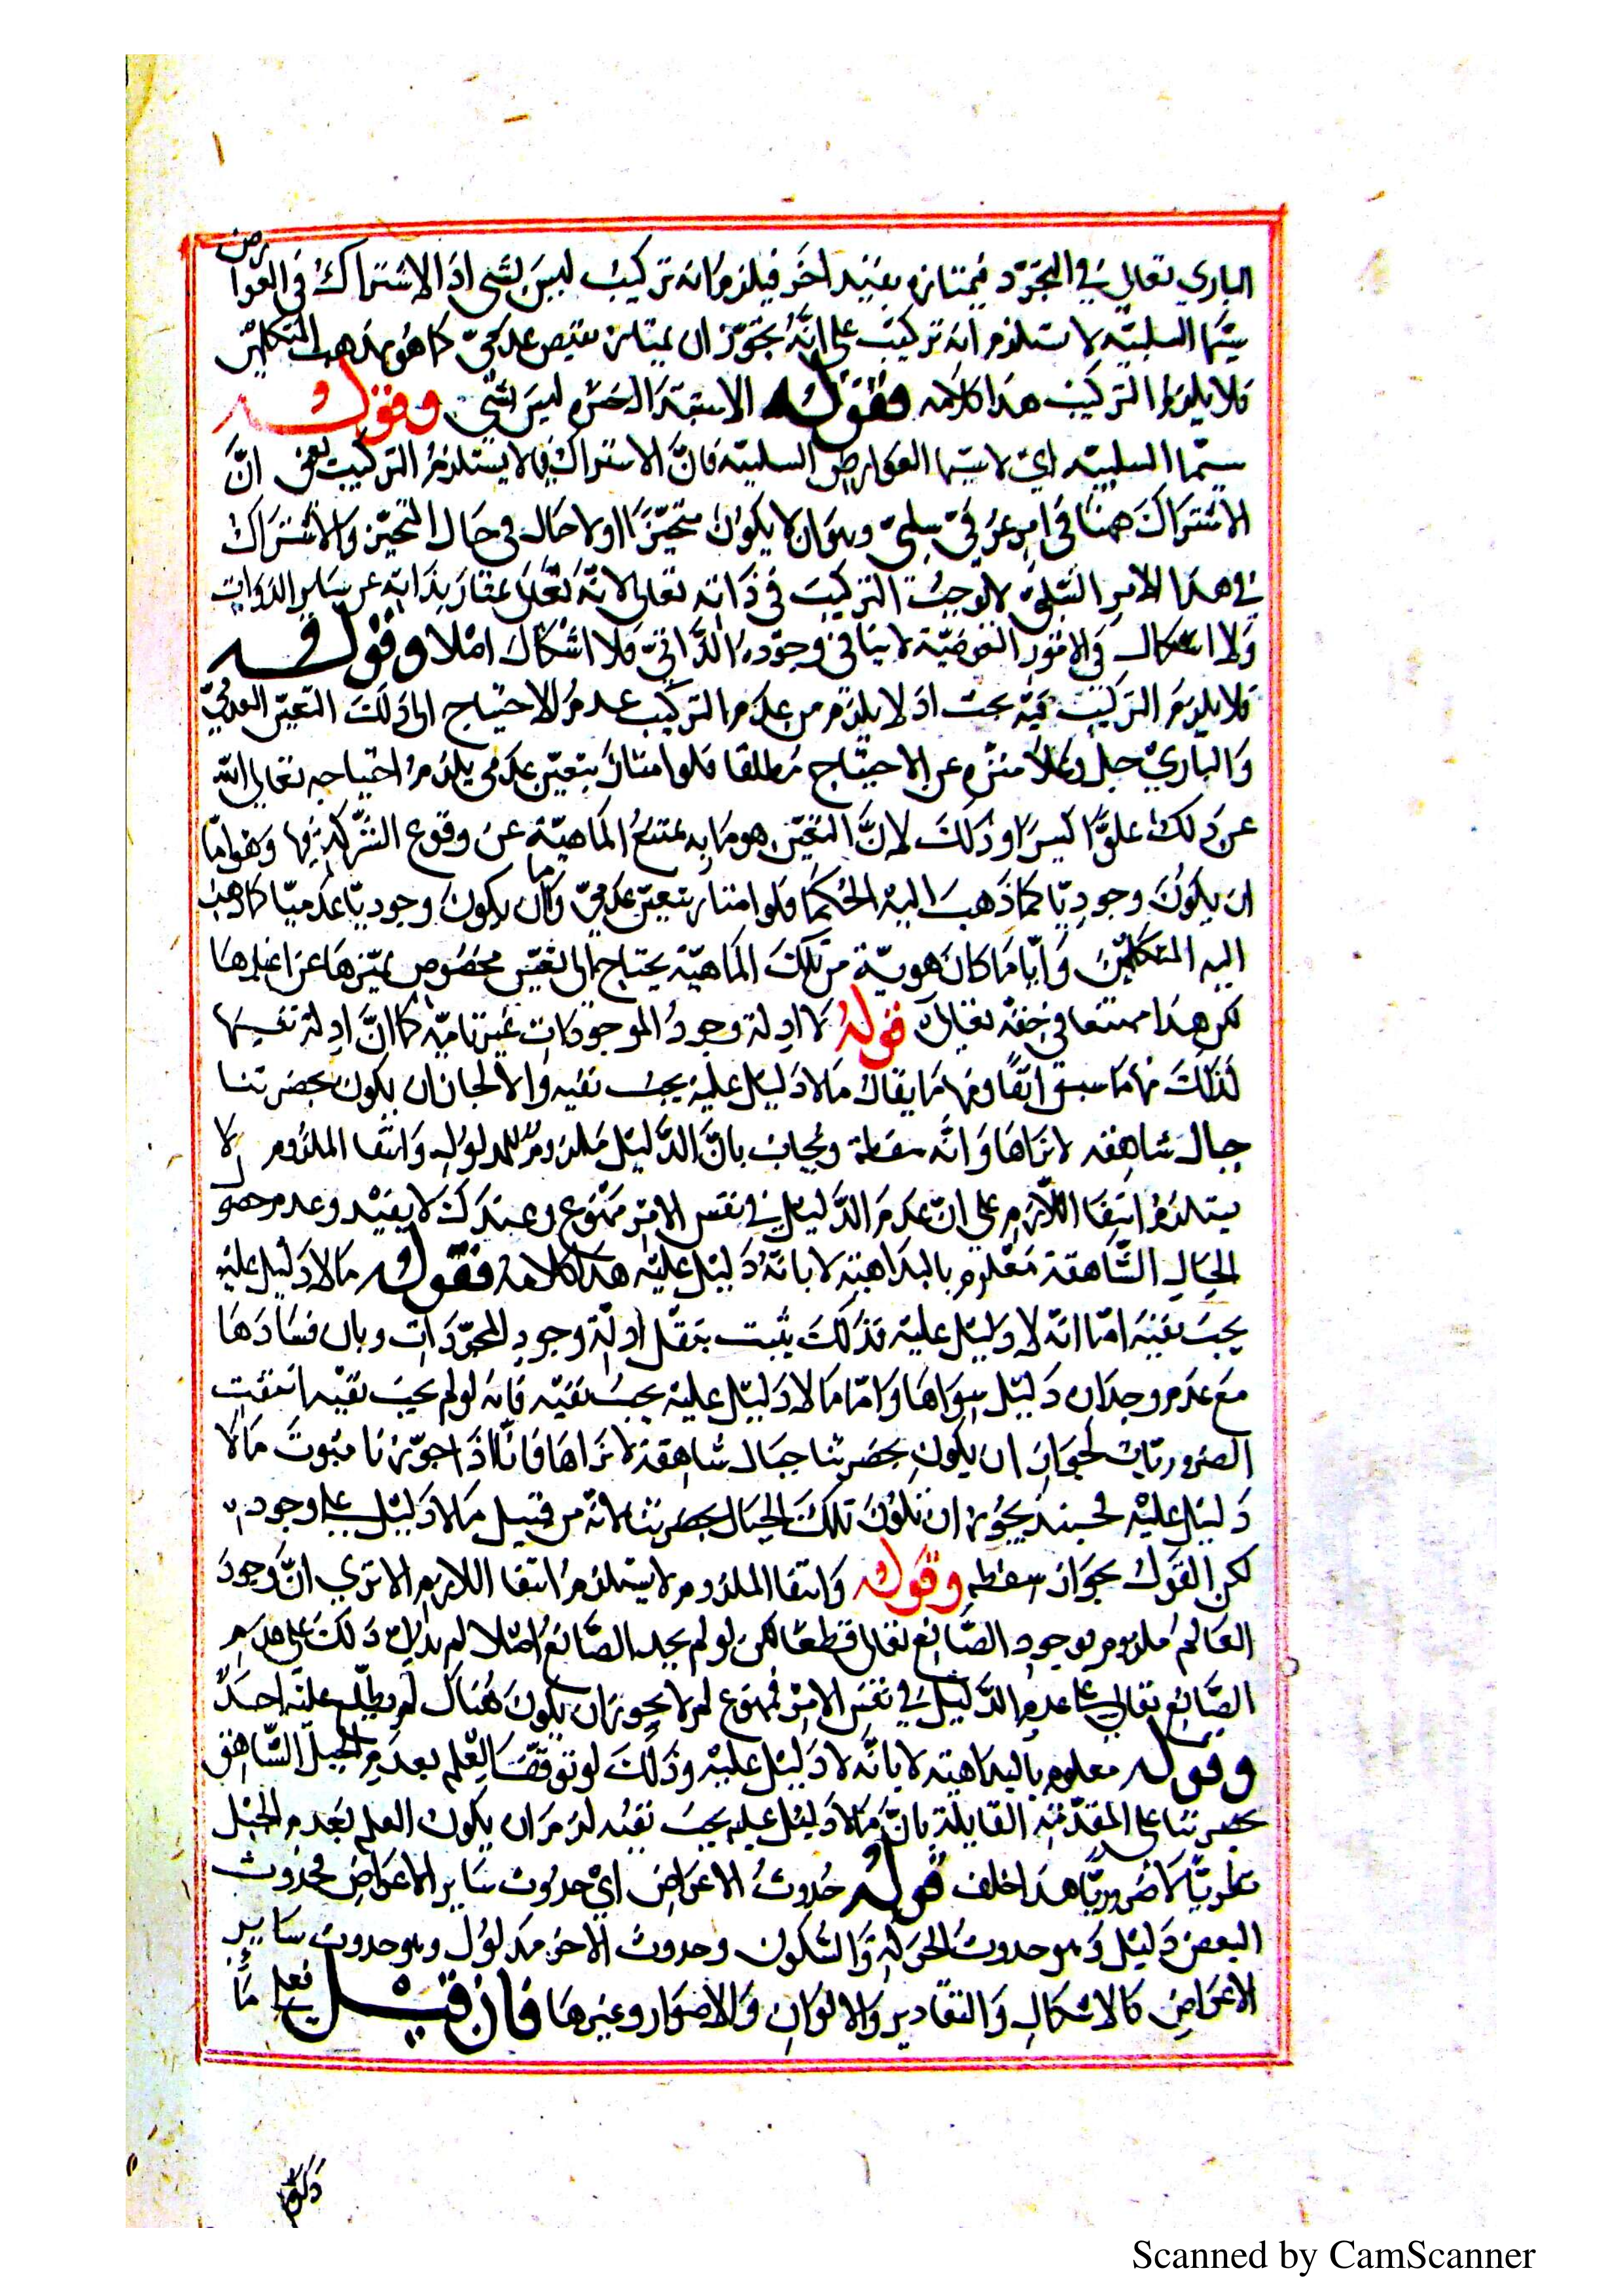 الباري تعالي في التجرد فيمتازه بقيد اخر فيلزم انه تركيب ليس بشي اذ الاشتراك في العوارض
سيما السلبية لا ستلزم انه تركيب على انه يجوز ان يمتاز بتعين عدمي كما هو مذهب المتكلمين
فلا يلزم التركيب هذا كلامه فقوله الاستدلال ليس بشي وقوله
سيما السلبية اي لا سيما العوارض السلبية فان الاشتراك فيها لا يستلزم التركيب يعني ان
الاشتراك ههنا في امر عرضي سلبي وهو ان لا يكون متحيزا اولا حال في حال التحيز والاشتراك
في هذا الامر السلبي لا يوجب التركيب في ذاته تعالى لانه تعالى يمتاز بذاته عن ساير الذوات
ولا اشكال في الامور العرضية لا ينافي وجوده الذاتي فلا اشكال اصلا وقوله
فلا يلزم التركيب فيه بحث اذ لا يلزم من عدم التركيب عدم الاحتياج الى ذلك التعين العدمي
والباري جل وعلا منزه عن الاحتياج مطلقا فلو امتاز بتعين عدمي يلزم احتياجه تعالى الله
عن ذلك علوا كبيرا وذلك لان التعين هو ما به يمتنع الماهية عن وقوع الشركة فيها وهو اما
ان يكون وجوديا كما ذهب اليه الحكما فلو امتاز بتعين عدمي واما ان يكون وجوديا عدميا كما ذهب
اليه المتكلمين وايا ما كان هوية من تلك الماهية يحتاج الى تعين مخصوص يميزها عن اغيارها
لكن هذا ممتنعا في حقه تعالى قوله لا ادلة وجود الموجودات غير تامة كما ان ادلة نفسها
كذلك منها ما سبق انفا ومنها ما يقال ما لا دليل عليه يجب نفيه والا لجاز ان يكون بحضرتنا
جبال شاهقه لا نراها وانه سفسطة ويجاب بان الدليل ملزوم للمدلوله وانتفا الملزوم لا
يستلزم انتفا اللازم على ان عدم الدليل في نفس الامر ممنوع وعندك لا يفيد وعدم حصول
الجبال الشاهقة معلوم بالبداهة لا بانه دليل عليه هذا كلامه فقوله ما لا دليل عليه
يجب نفيه اما انه لا دليل عليه فذلك يثبت بنقل ادلة وجود المجردات وبان فسادها
مع عدم وجدان دليل سواها واما ما لا دليل عليه يجب نفيه فانه لو لم يجب نفيه انتفت
الضروريات لجواز ان يكون بحضرتنا جبال شاهقة لا نراها فانا اذا جوزنا ثبوت ما لا
دليل عليه فحينئذ يجوز ان تكون تلك الجبال بحضرتنا لانه من قبيل ما لا دليل على وجوده
لكن القول بجواز سفسطه وقوله وانتفا الملزوم لا يستلزم انتفا اللازم الا ترى ان وجود
العالم ملزوم لوجود الصانع تعالى قطعا لكن لو لم يجد الصانع اصلا لم يدل ذلك على عدم
الصانع تعالى على عدم الدليل في نفس الامر ممنوع لم لا يجوز ان يكون هناك لم يطلع عليه احد
وقوله معلوم بالبداهة لا بانه لا دليل عليه وذلك لو توقف العلم بعدم الجبل الشاهق
بحضرتنا على المقدمة القايلة بان ما لا دليل عليه يجب نفيه لزم ان يكون العلم بعدم الجبل
نظريا لا ضروريا هذا خلف قوله حدوث الاعراض اي حدوث ساير الاعراض فحدوث
البعض دليل وهو حدوث الحركة والسكون وحدوث الاخر مدلول وهو حدوث ساير
الاعراض كالاشكال والتقادير والالوان والاضوار وغيرها فان قيل فعلى ما
Scanned by CamScanner